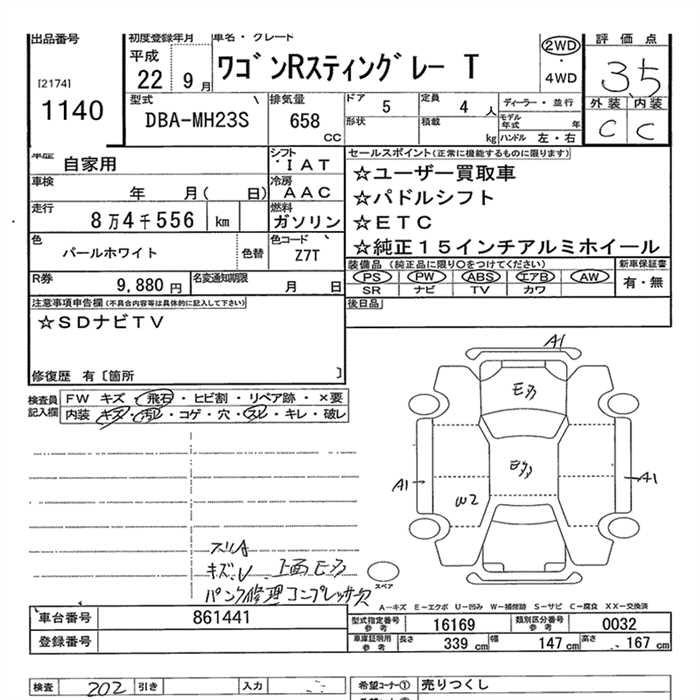 出品番号
[2174]
1140
初度登録年月
平成
22年 9月
車名・グレード
ワゴンRスティングレー T
2WD
・
4WD
評価点
3.5
外装 内装
C C
型式
DBA-MH23S
排気量
658
CC
ドア 5
形状
定員 4 人
積載 kg
ディーラー・並行
モデル年式 年
ハンドル 左・右
車歴 自家用
シフト IAT
車検 年 月( 日)
冷房 AAC
走行 8万4千556 km
燃料 ガソリン
色 パールホワイト 色替
色コード Z7T
R券 9,880 円
名変通知期限 月 日
セールスポイント(正常に機能するものに限ります)
☆ユーザー買取車
☆パドルシフト
☆ETC
☆純正15インチアルミホイール
装備品 (純正品に限り○をつけてください)
PS PW ABS エアB AW
SR ナビ TV カワ
新車保証書
有・無
後日品
注意事項申告欄(不具合内容等は具体的に記入して下さい)
☆SDナビTV
修復歴 有〔箇所 〕
検査員記入欄
FW キズ・飛石・ヒビ割・リペア跡・×要
内装 キズ・汚れ・コゲ・穴・スレ・キレ・破レ
A1
A1
W2
A1
スリA
キズ.U 上面Eヲ
パンク修理コンプレッサー欠
スペア
A－キズ E－エクボ U－凹み W－補修跡 S－サビ C－腐食 XX－交換済
車台番号 861441
登録番号
型式指定番号参考 16169
類別区分番号参考 0032
車庫証明用参考 長さ 339 cm 幅 147 cm 高さ 167 cm
検査 202 引き 入力
希望コーナー① 売りつくし
希望コーナー②